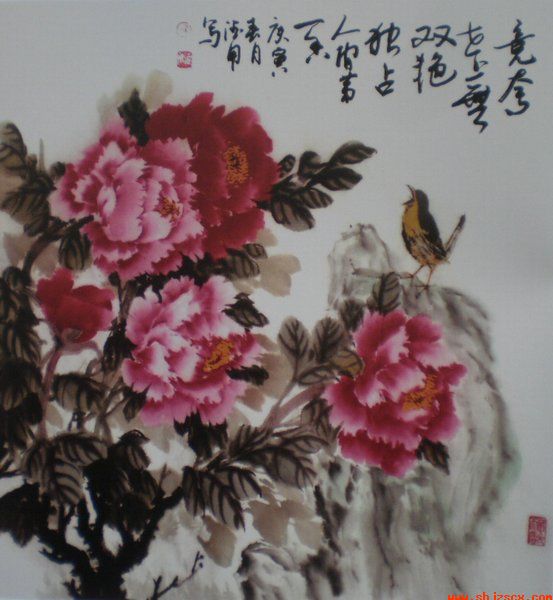 竞夸
天下無
双艳
独占
人间第
一香
庚寅
春月
写
www.shjzscx.com